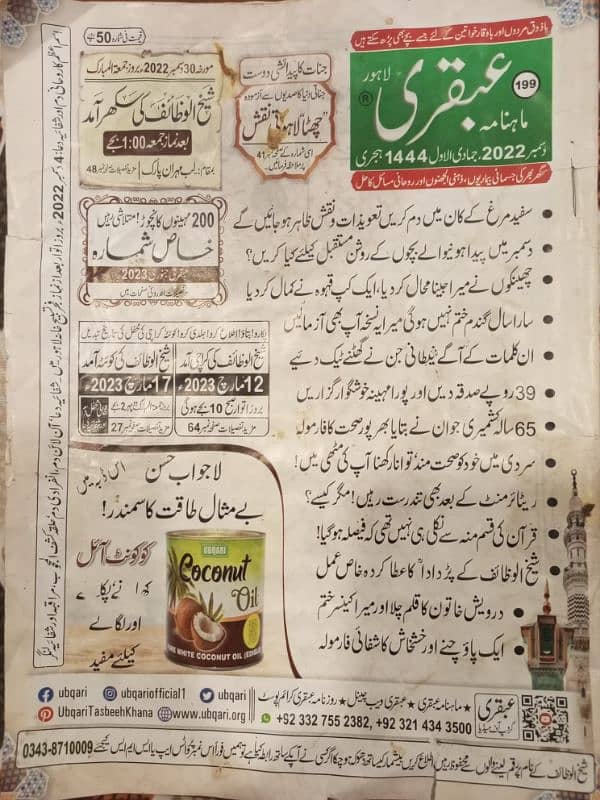 باذوق مردوں اور باوقار خواتین کے لئے جسے بچے بھی پڑھ سکتے ہیں
ماہنامہ عبقری لاہور
199
®
دسمبر 2022ء جمادی الاول 1444 ہجری
گھر بھر کی جسمانی بیماریوں، ذہنی الجھنوں اور روحانی مسائل کا حل
قیمت فی شمارہ 50 روپے
جنات کا پیدائشی دوست
جناتی دنیا کا صدیوں سے آزمودہ
چھٹا لاہوتی نقش
اسی شمارے کے صفحہ نمبر 41
پر ملاحظہ فرمائیں۔
مورخہ 30 دسمبر 2022ء بروز جمعۃ المبارک
شیخ الوظائف کی سکھر آمد
بعد نماز جمعہ 1:00 بجے
بمقام: لب مہران پارک مزید تفصیلات نمبر 48
200 مہینوں کا نچوڑ! متلاشی ہیں
خاص شمارہ
عبقری جنوری 2023
تفصیلات اندرونی صفحات میں
شیخ الوظائف کی کراچی آمد
12 مارچ 2023ء
بروز اتوار صبح 10 بجے ہوگی
مزید تفصیلات صفحہ نمبر 64
شیخ الوظائف کی کوئٹہ آمد
17 مارچ 2023ء
مزید تفصیلات صفحہ نمبر 27
سفید مرغ کے کان میں دم کریں تعویذات و نقش ظاہر ہو جائیں گے
دسمبر میں پیدا ہونیوالے بچوں کے روشن مستقبل کیلئے کیا کریں؟
چھینکوں نے میرا جینا محال کر دیا، ایک کپ قہوہ نے کمال کر دیا
سارا سال گندم ختم نہیں ہوگی میرا یہ نسخہ آپ بھی آزمائیں
ان کلمات کے آگے شیطانی جن نے گھٹنے ٹیک دیے
39 روپے صدقہ دیں اور پورا مہینہ خوشگوار گزاریں
65 سالہ کشمیری جوان نے بتایا بھرپور صحت کا فارمولہ
سردی میں خود کو صحت مند توانا رکھنا آپ کی مٹھی میں!
ریٹائرمنٹ کے بعد بھی تندرست رہیں! مگر کیسے؟
قرآن کی قسم منہ سے نکلی ہی نہیں تھی کہ فیصلہ ہو گیا!
شیخ الوظائف کے پڑدادا کا عطا کردہ خاص عمل
درویش خاتون کا قلم چلا اور میرا کینسر ختم
ایک پاؤ چنے اور خشخاش کا شفائی فارمولہ
لاجواب حسن
بے مثال طاقت کا سمندر!
کوکونٹ آئل
اور لگانے
کیلئے مفید
UBQARI
Coconut
Oil
PURE WHITE COCONUT OIL (EDIBLE)
ubqari
ubqariofficial1
ubqari
UbqariTasbeehKhana
www.ubqari.org
ماہنامہ عبقری ★ عبقری ویب چینل ★ روزنامہ عبقری کرائم پوسٹ
+92 332 755 2382, +92 321 434 3500
عبقری
0343-8710009